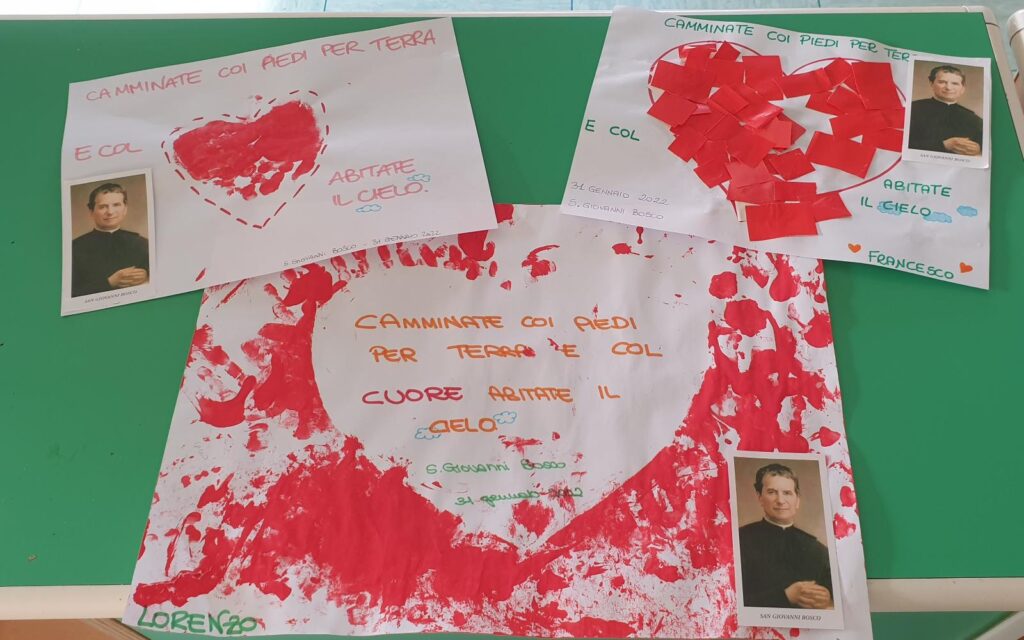 CAMMINATE COI PIEDI PER TERRA
E COL
ABITATE
IL CIELO.
S. GIOVANNI BOSCO - 31 GENNAIO 2022
SAN GIOVANNI BOSCO
CAMMINATE COI PIEDI PER TER
E COL
ABITATE
IL CIELO
31 GENNAIO 2022
S. GIOVANNI BOSCO
FRANCESCO
SAN GIOVANNI BOSCO
CAMMINATE COI PIEDI
PER TERRA E COL
CUORE ABITATE IL
CIELO
S. Giovanni Bosco
31 gennaio 2022
LORENZO
SAN GIOVANNI BOSCO